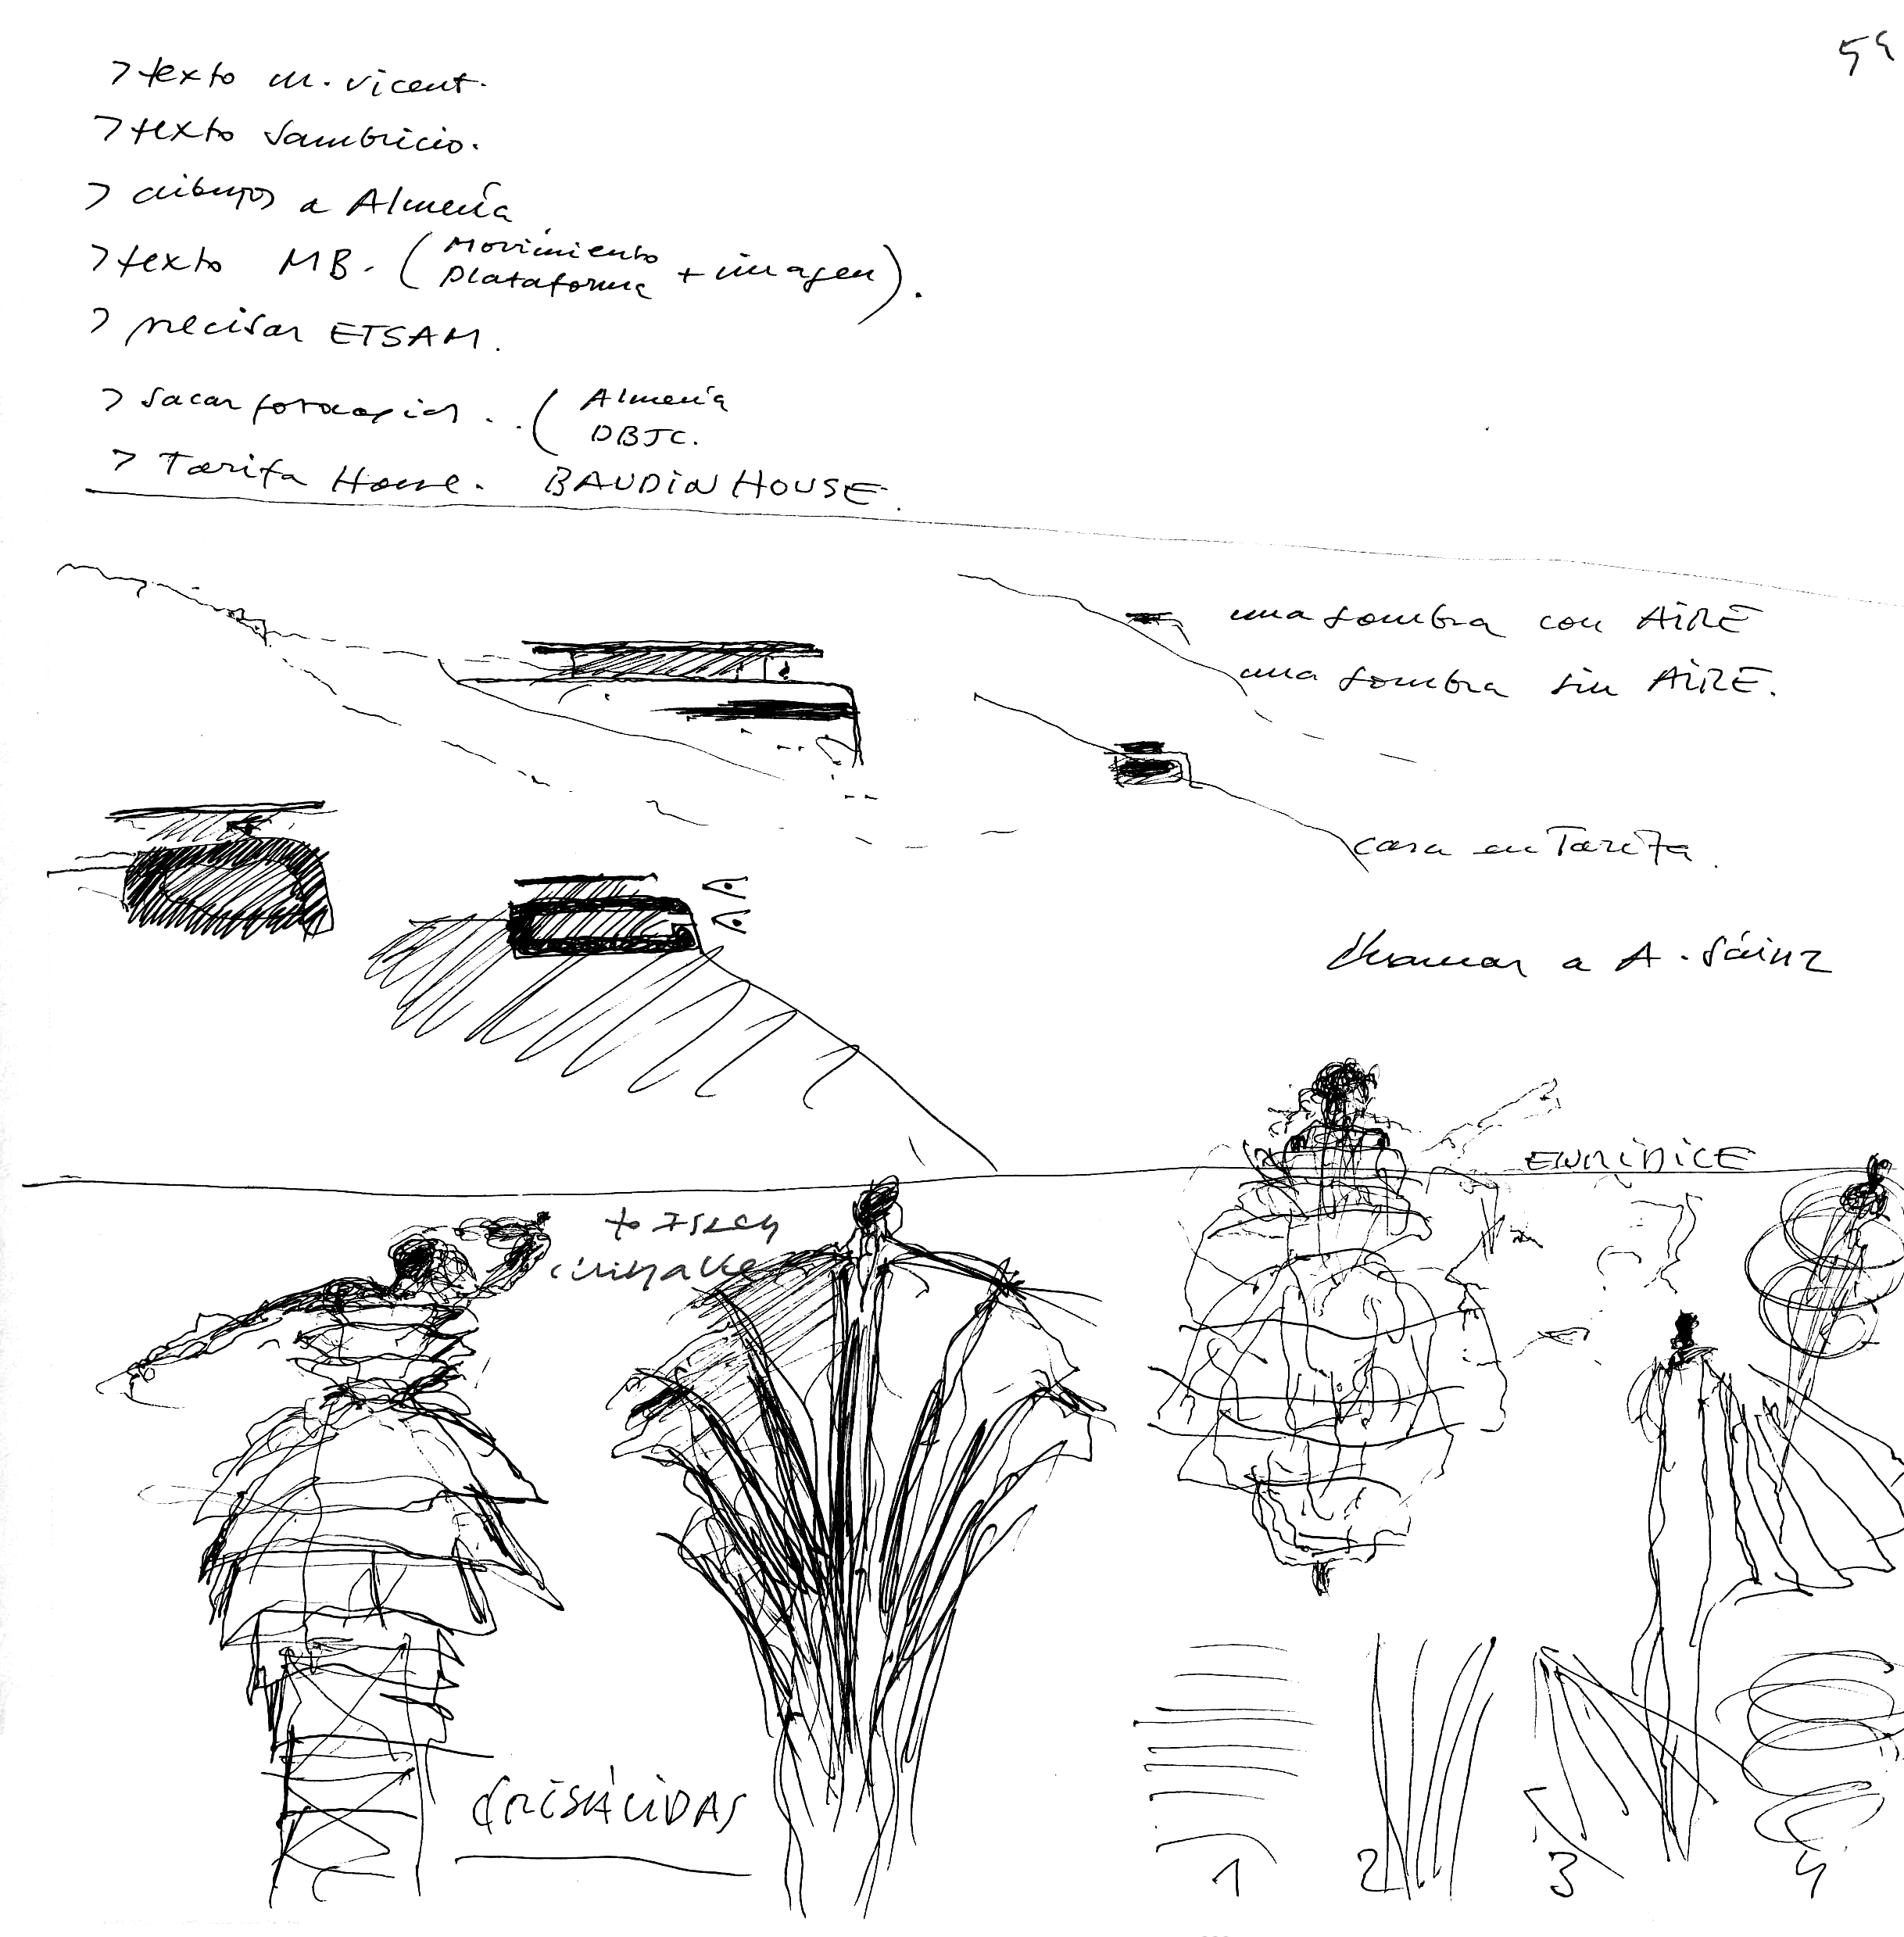 59
> texto M. Vicent.
> texto Sambricio.
> dibujos a Almería
> texto MB. (Movimiento Plataforma + imagen).
> precisar ETSAM.
> sacar fotocopias . . ( Almería
DBJC.
> Tarifa House. BAUDIN HOUSE.
una sombra con AIRE
una sombra sin AIRE.
casa en Tarifa.
llamar a A. Sáinz
EURIDICE
to Issey
miyake
CRISÁLIDAS
1 2 3 4